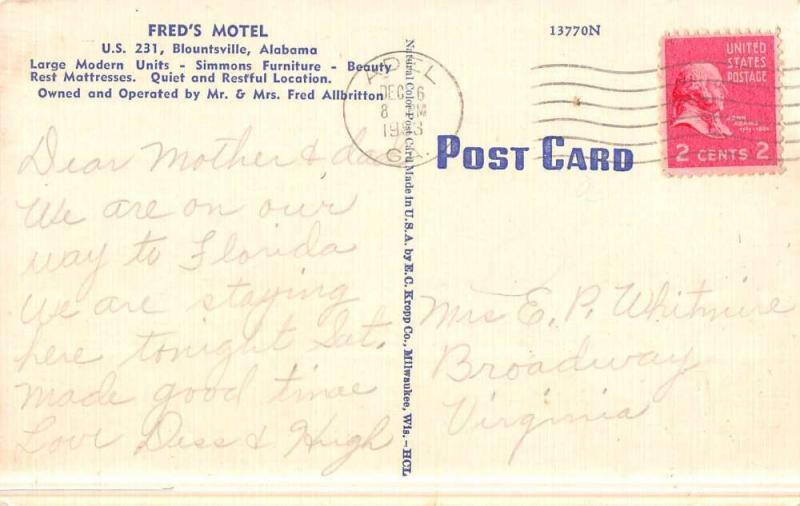 FRED'S MOTEL
U.S. 231, Blountsville, Alabama
Large Modern Units - Simmons Furniture - Beauty
Rest Mattresses. Quiet and Restful Location.
Owned and Operated by Mr. & Mrs. Fred Allbritton
13770N
UNITED
STATES
POSTAGE
JOHN
ADAMS
2 CENTS 2
ADEL
DEC 6
8 PM
GA.
POST CARD
Natural Color Post Card Made in U.S.A. by E.C. Kropp Co., Milwaukee, Wis.-HCL
Dear Mother & dad
We are on our
way to Florida
We are staying
here tonight Sat.
made good time
Love Dess & Hugh
Mrs E. P. Whitmire
Broadway
Virginia